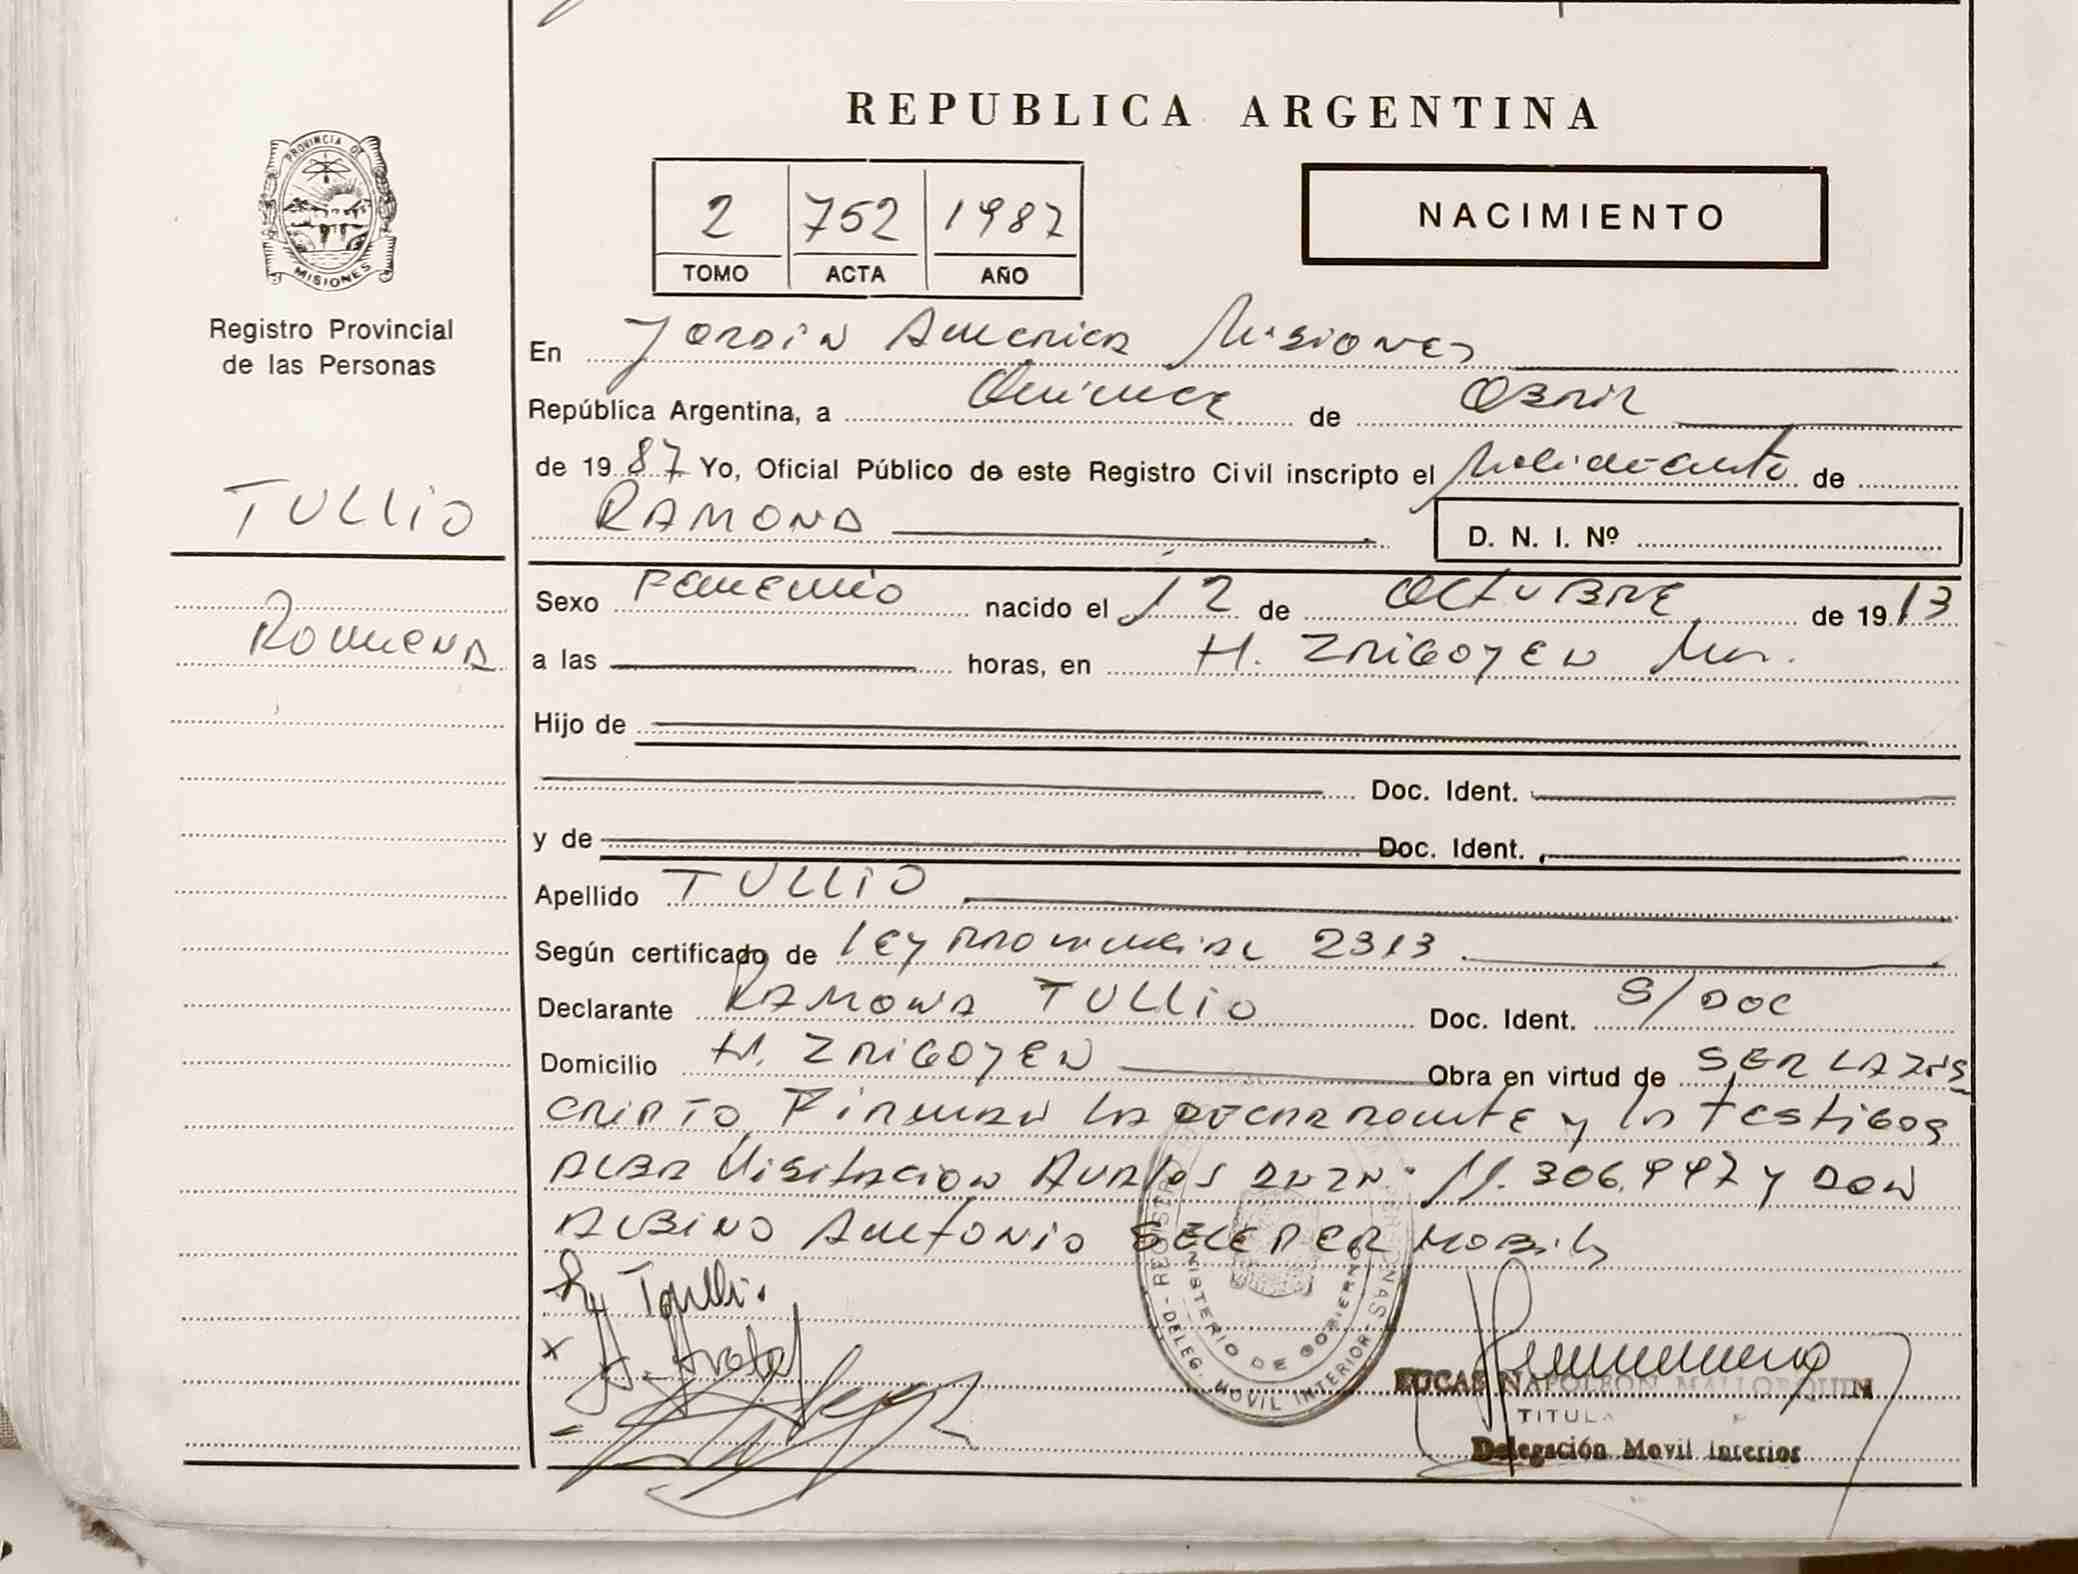 REPUBLICA ARGENTINA
PROVINCIA DE
MISIONES
Registro Provincial
de las Personas
2 752 1987
TOMO ACTA AÑO
NACIMIENTO
En Jardin America Misiones
República Argentina, a Quince de Abril
de 1987 Yo, Oficial Público de este Registro Civil inscripto el Nacimiento de
RAMONA D. N. I. Nº
TULLIO
Sexo Femenino nacido el 12 de OCTUBRE de 1913
Ramona
a las horas, en H. IRIGOYEN Mis.
Hijo de
Doc. Ident.
y de Doc. Ident.
Apellido TULLIO
Según certificado de Ley Provincial 2313
Declarante RAMONA TULLIO Doc. Ident. S/DOC
Domicilio H. IRIGOYEN Obra en virtud de SER LA INS
CRIPTO, Firman la declarante y los testigos
ALBA Visitacion Avalos 11.306.997 y DON
ALBINO ANTONIO
MINISTERIO DE GOBIERNO
DELEG. MOVIL INTERIOR
LUCAS NAPOLEON MALLORQUIN
TITULAR
Delegación Movil Interior